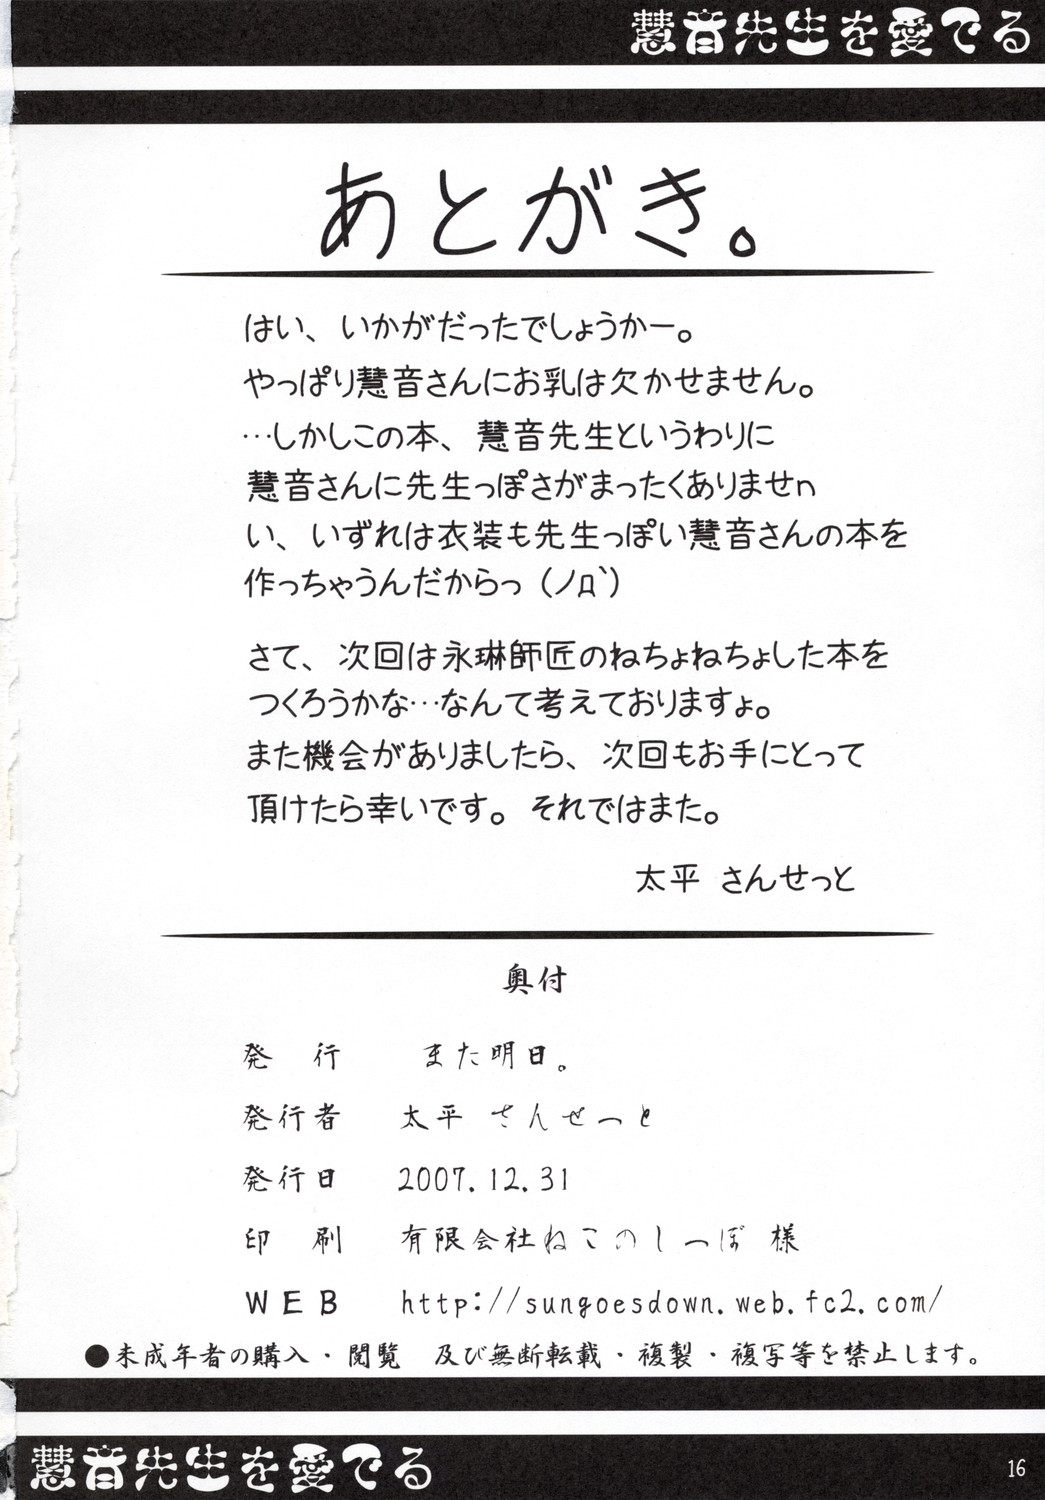 慧音先生を愛でる
あとがき。
はい、いかがだったでしょうかー。
やっぱり慧音さんにお乳は欠かせません。
…しかしこの本、慧音先生というわりに
慧音さんに先生っぽさがまったくありませn
い、いずれは衣装も先生っぽい慧音さんの本を
作っちゃうんだからっ（ノД`）
さて、次回は永琳師匠のねちょねちょした本を
つくろうかな…なんて考えておりますょ。
また機会がありましたら、次回もお手にとって
頂けたら幸いです。それではまた。
太平 さんせっと
奥付
発　行　また明日。
発行者　太平 さんせっと
発行日　2007.12.31
印　刷　有限会社ねこのしっぽ 様
ＷＥＢ　http://sungoesdown.web.fc2.com/
●未成年者の購入・閲覧　及び無断転載・複製・複写等を禁止します。
慧音先生を愛でる
16